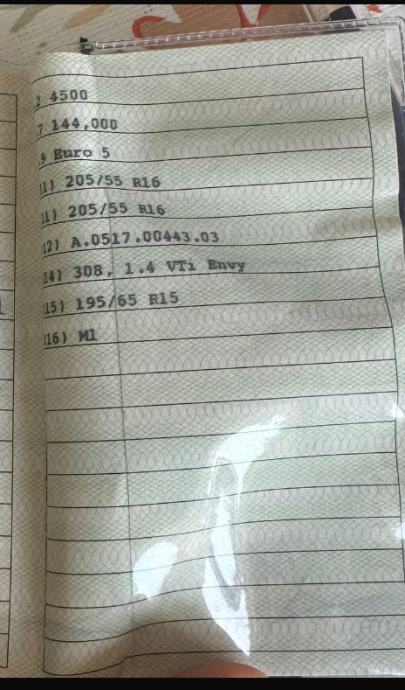 2 4500
7 144,000
9 Euro 5
11) 205/55 R16
11) 205/55 R16
12) A.0517.00443.03
14) 308, 1.4 VTi Envy
15) 195/65 R15
16) M1